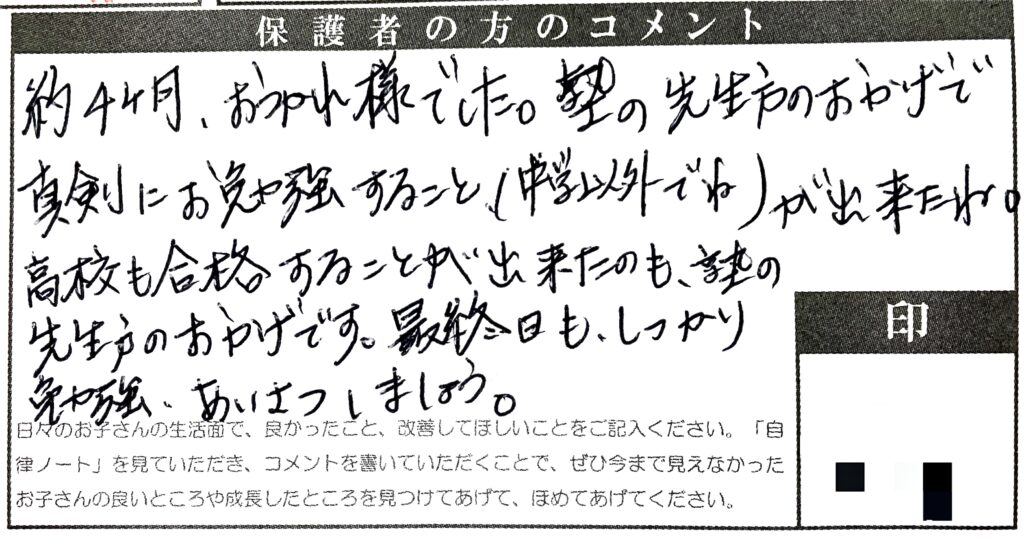 保護者の方のコメント
約4ヶ月、おつかれ様でした。塾の先生方のおかげで
真剣にお勉強すること、(中学以外でね)が出来たね。
高校も合格することが出来たのも、塾の
先生方のおかげです。最終日も、しっかり
勉強、あいさつしましょう。
印
日々のお子さんの生活面で、良かったこと、改善してほしいことをご記入ください。「自
律ノート」を見ていただき、コメントを書いていただくことで、ぜひ今まで見えなかった
お子さんの良いところや成長したところを見つけてあげて、ほめてあげてください。